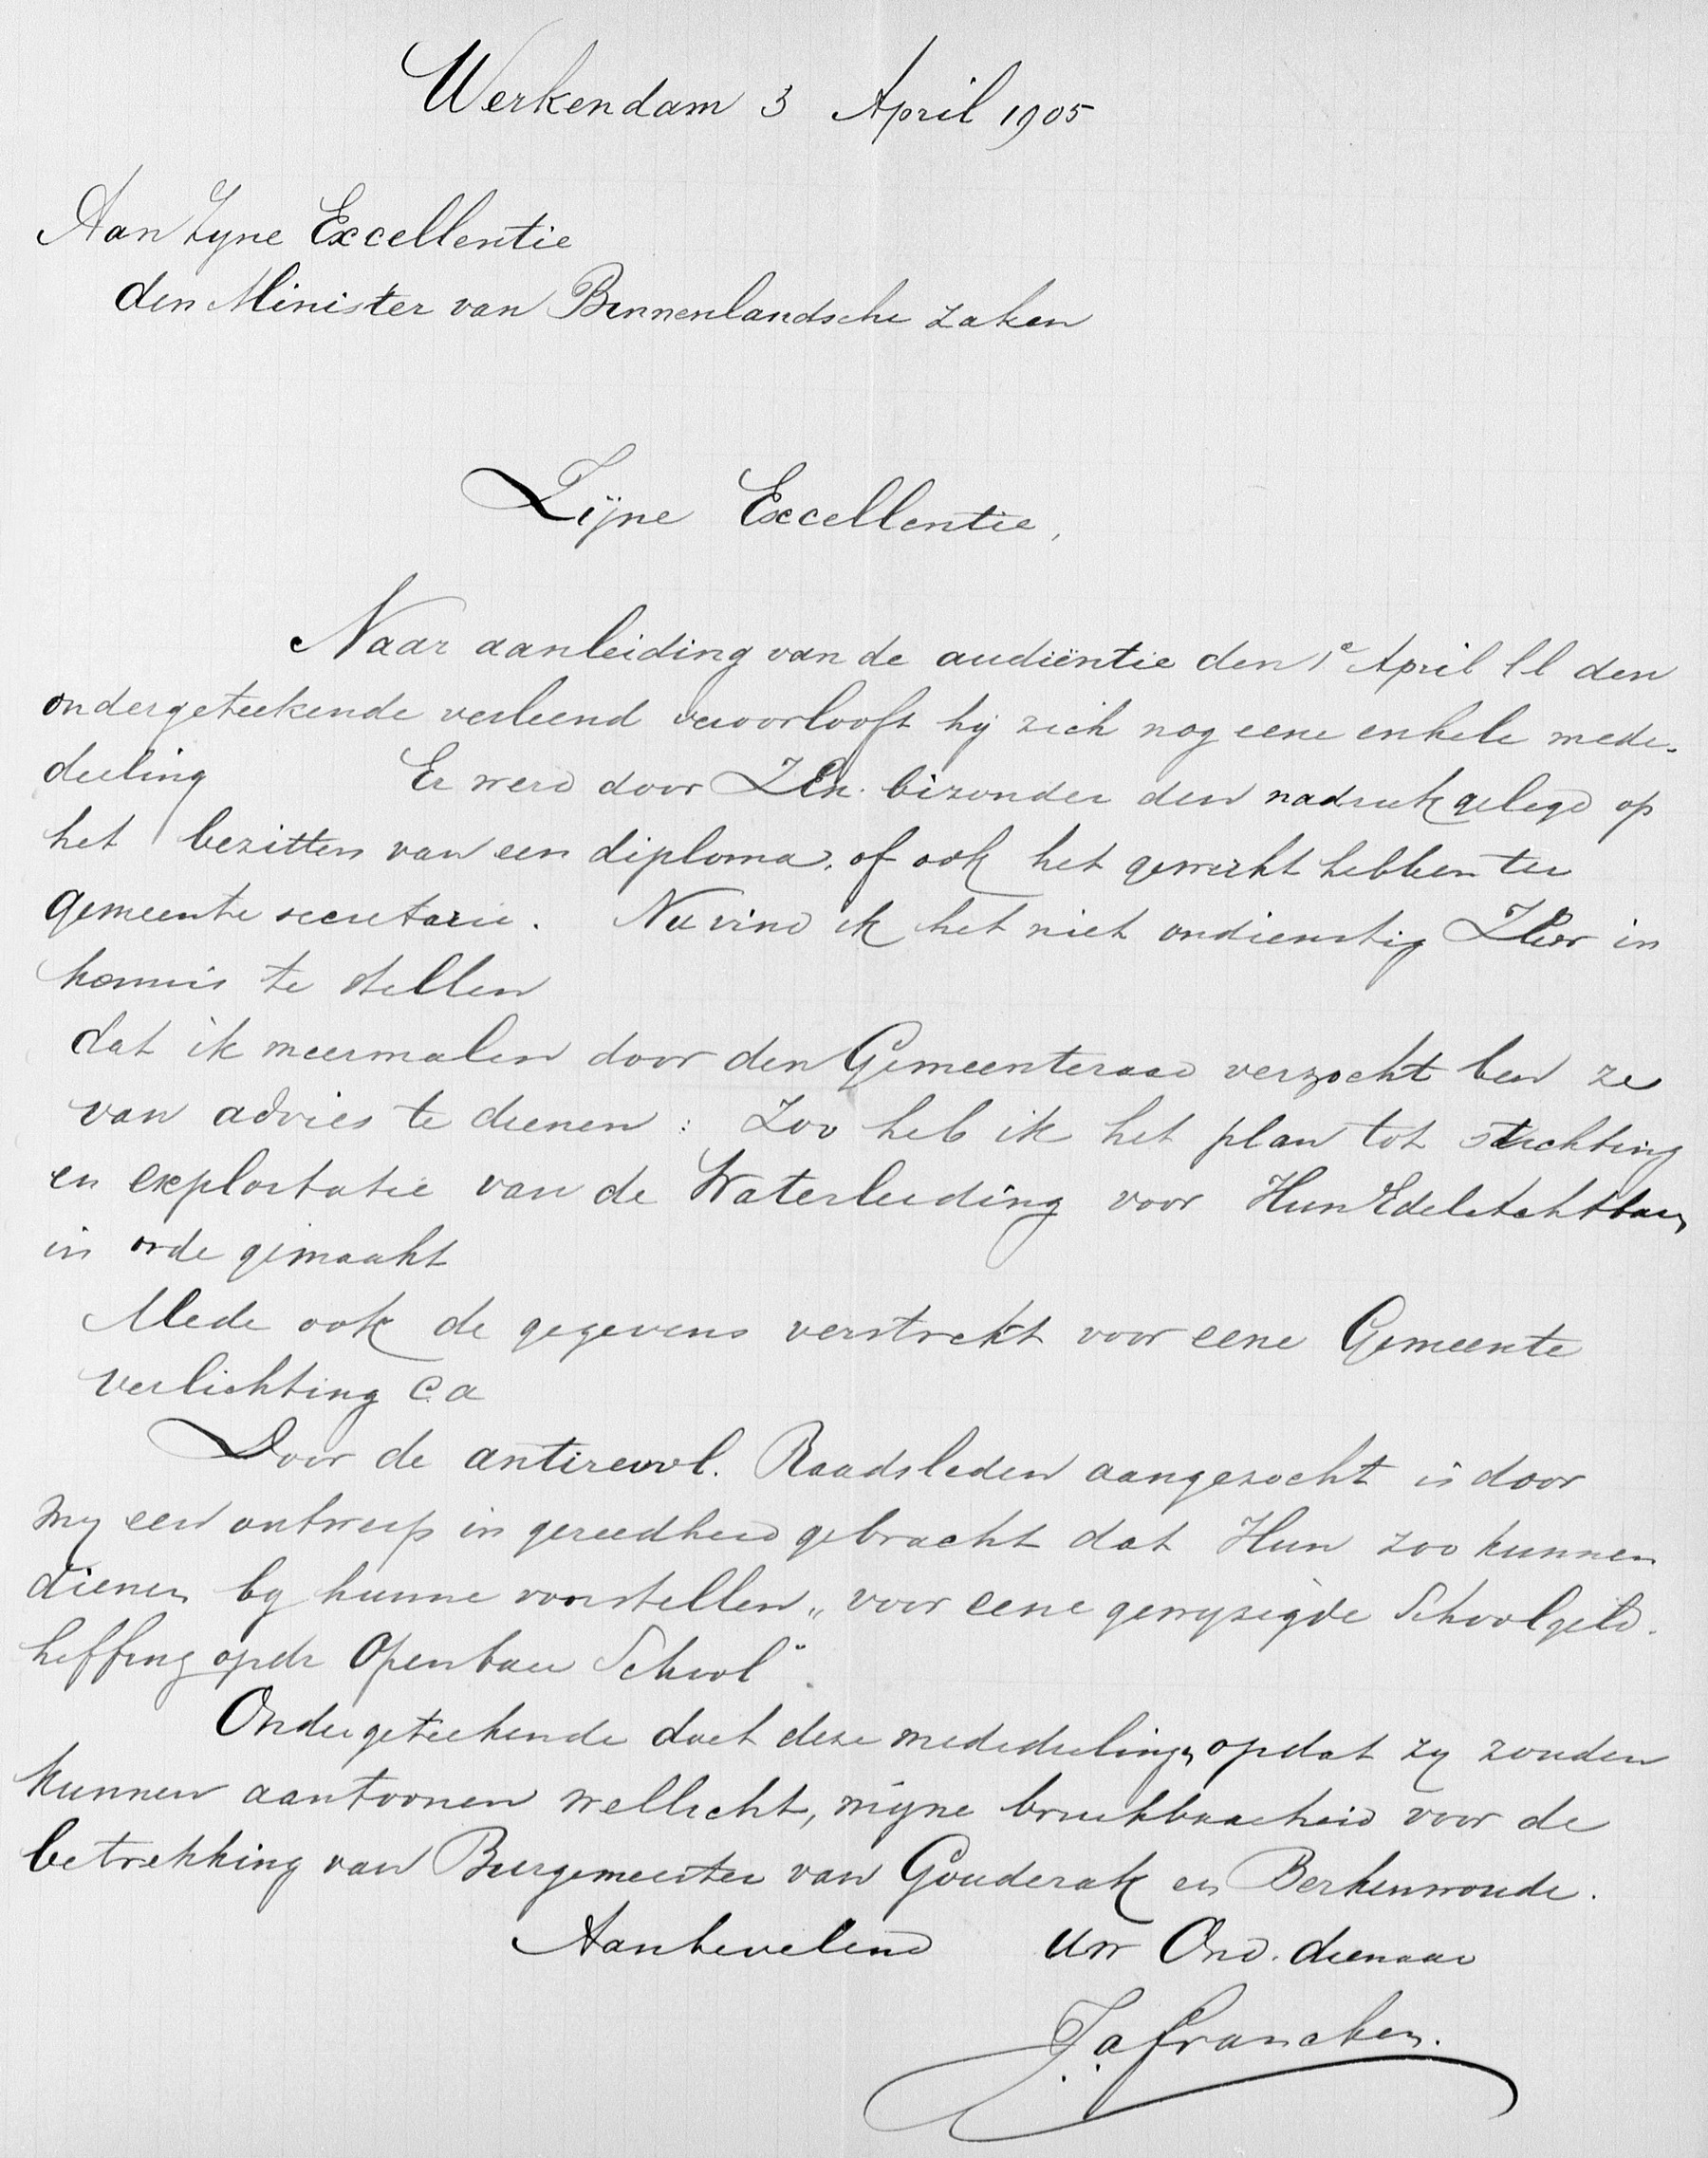 Werkendam 3 April 1905
Aan Zyne Excellentie
den Minister van Binnenlandsche Zaken
Zijne Excellentie,
Naar aanleiding van de audiëntie den 1e April ll den
ondergeteekende verleend veroorlooft hij zich nog eene enkele mede-
deeling Er werd door ZEx. bizonder den nadruk gelegd op
het bezitten van een diploma, of ook het gewerkt hebben ter
Gemeente secretarie. Nu vind ik het niet ondienstig in
kennis te stellen
dat ik meermalen door den Gemeenteraad verzocht ben ze
van advies te dienen: Zoo heb ik het plan tot stichting
en exploitatie van de Waterleiding voor Hun Edelachtbaren
in orde gemaakt
Mede ook de gegevens verstrekt voor eene Gemeente
verlichting c.a
Door de antirevol. Raadsleden aangezocht is door
my een ontwerp in gereedheid gebracht dat Hun zoo kunnen
dienen by hunne voorstellen „voor eene gewyzigde Schoolgeld-
heffing op de Openbare School".
Ondergeteekende doet deze mededeelingen opdat zy zouden
kunnen aantoonen wellicht, mijne bruikbaarheid voor de
betrekking van Burgemeester van Gouderak en Berkenwoude.
Aanbevelend Uw Ond. dienaar
J. A. Francken.